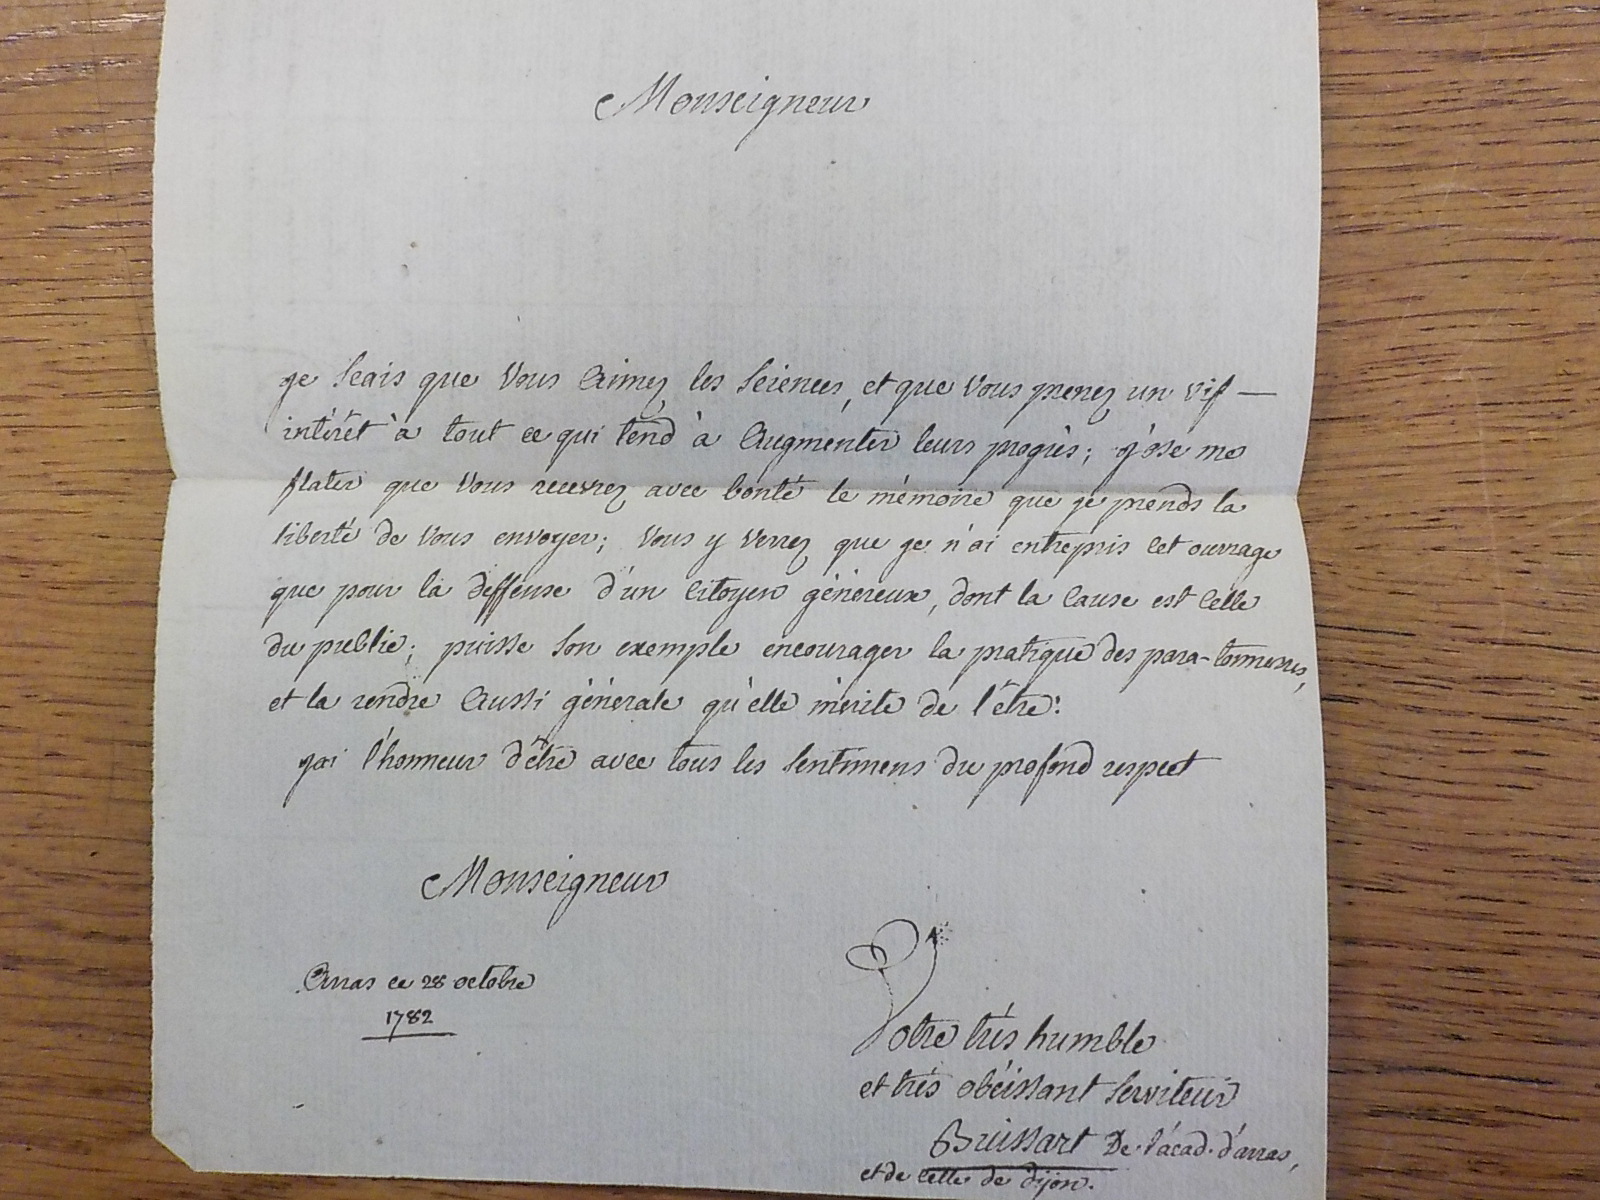 Monseigneur
je scais que Vous aimez les sciences, et que Vous prenez un vif —
intérêt à tout ce qui tend à augmenter leurs progrès; j'ose me
flater que Vous recevrez avec bonté le mémoire que je prends la
liberté de Vous envoyer; Vous y Verrez que je n'ai entrepris cet ouvrage
que pour la deffense d'un citoyen généreux, dont la cause est celle
du public; puisse son exemple encourager la pratique des para-tonnerres,
et la rendre aussi générale qu'elle mérite de l'être.
j'ai l'honneur d'être avec tous les sentimens du profond respect
Monseigneur
Arras ce 28 octobre
1782
Votre très humble
et très obéissant serviteur
Buissart De l'acad. d'arras,
et de celle de dijon.